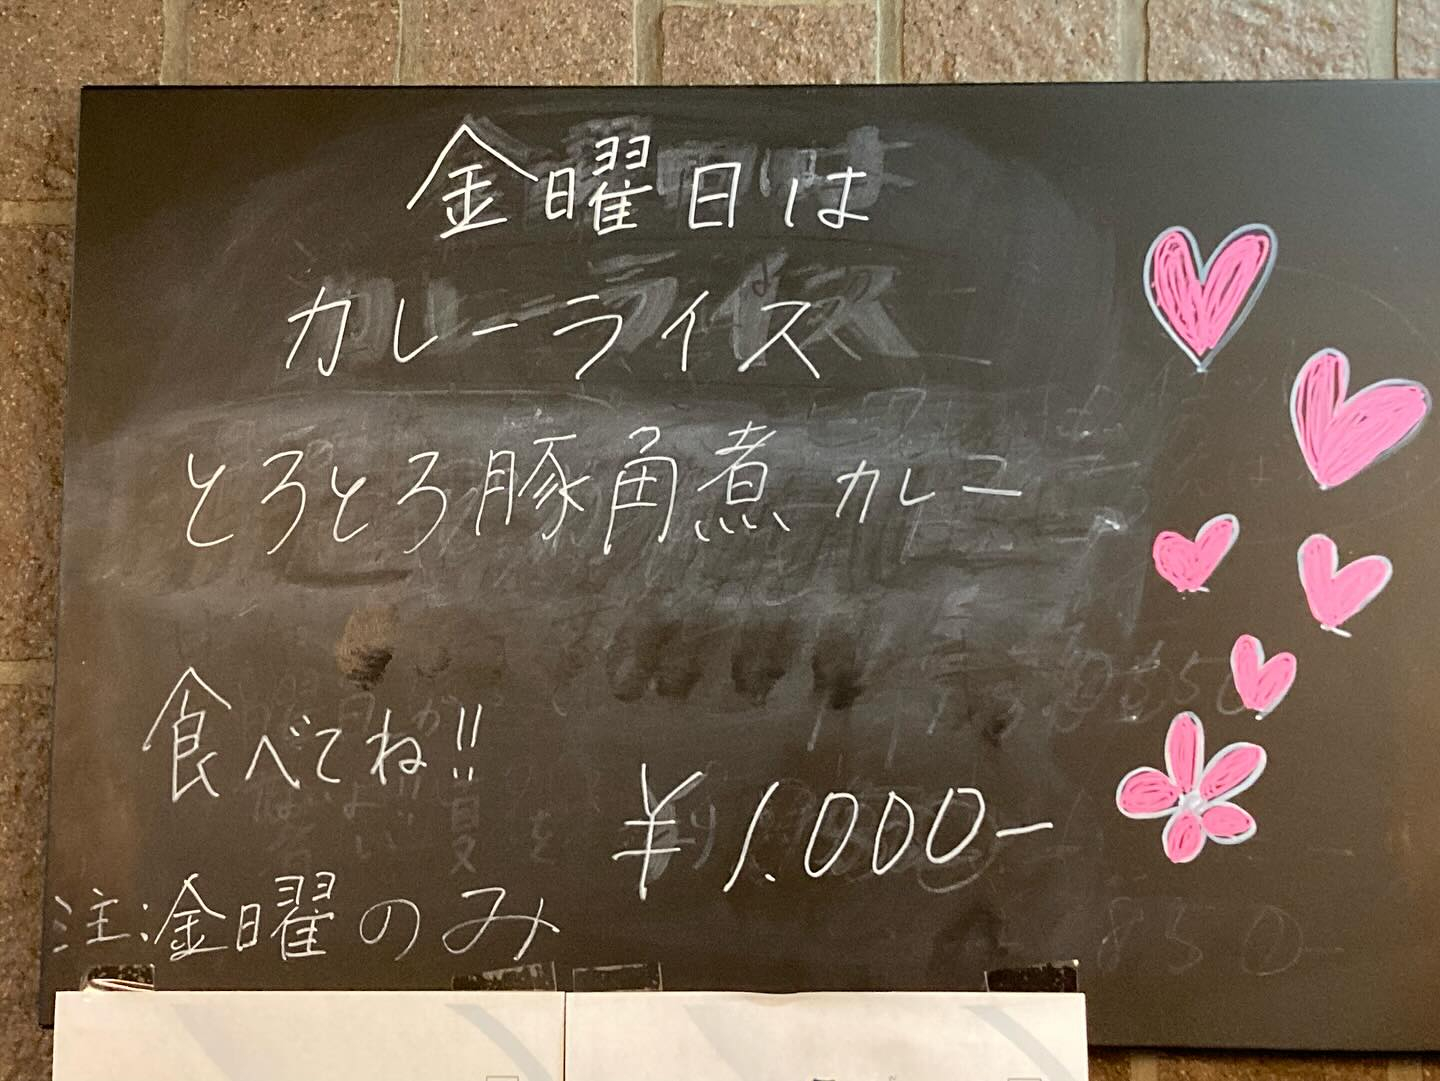 金曜日は
カレーライス
とろとろ豚角煮カレー
食べてね!!
¥1.000ー
注:金曜のみ